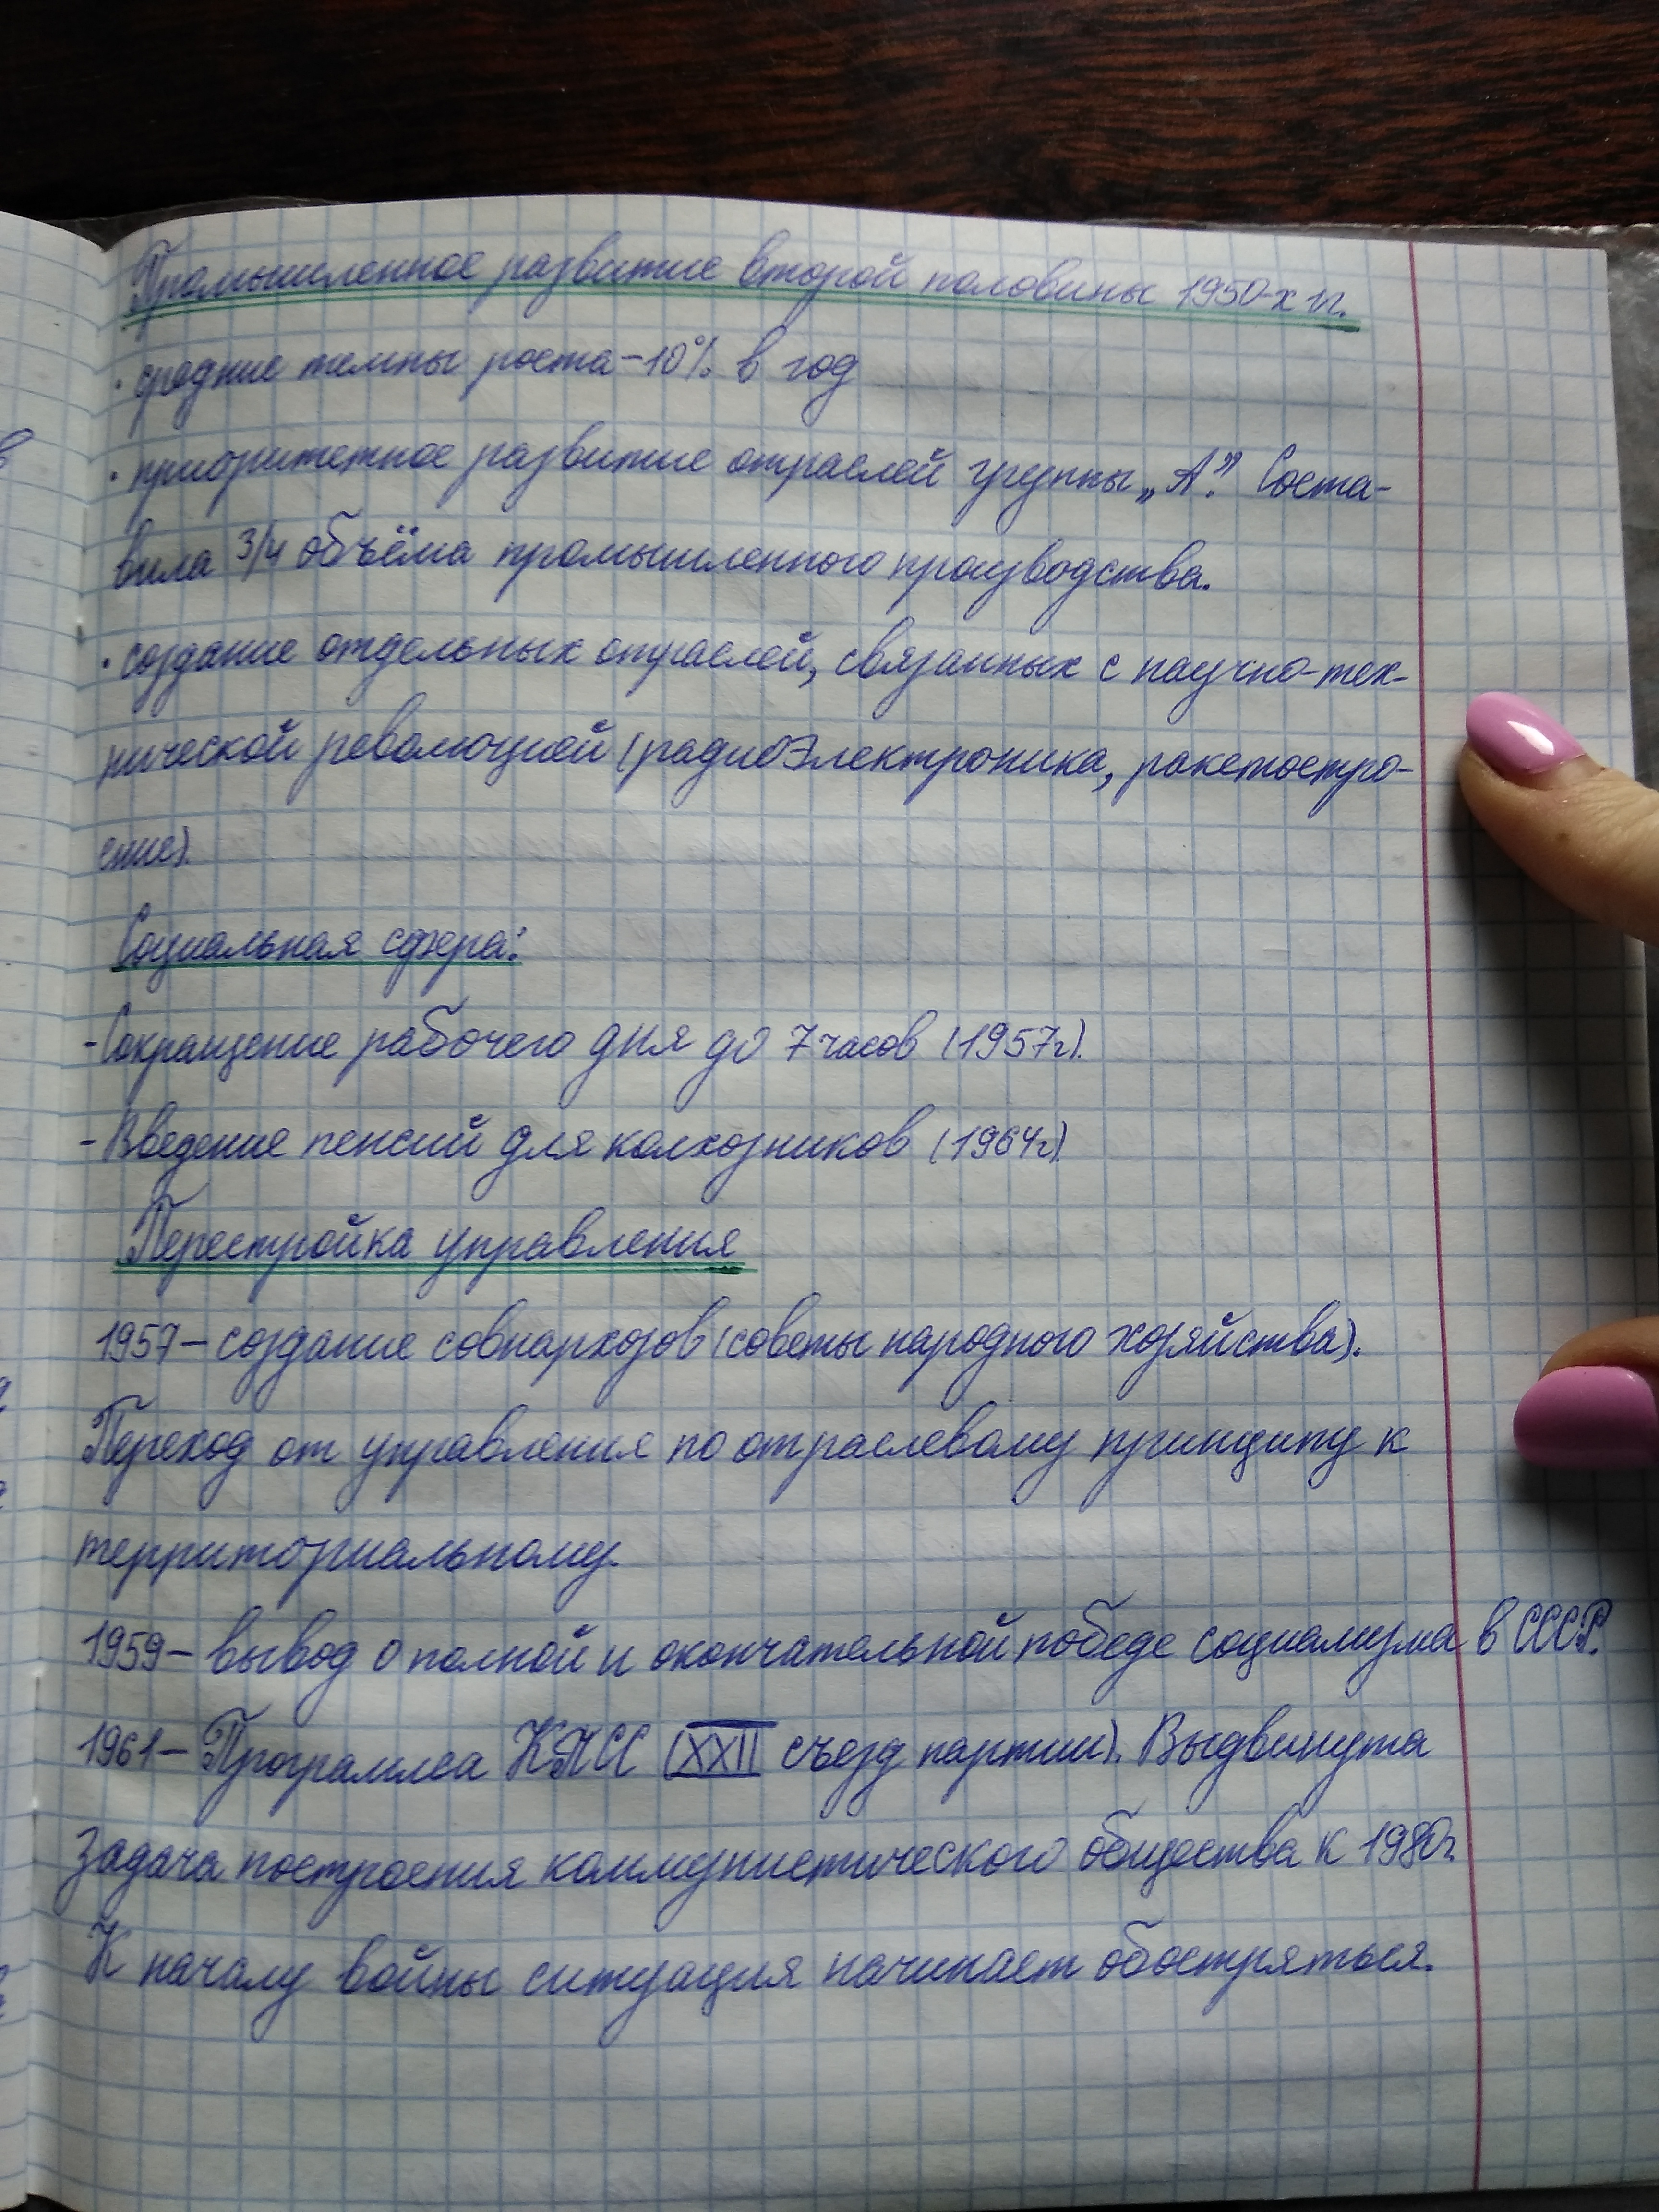 Промышленное развитие второй половины 1950-х гг.
· средние темпы роста – 10% в год
· приоритетное развитие отраслей группы „А”. Соста-
вила 3/4 объёма промышленного производства.
· создание отдельных отраслей, связанных с научно-тех-
нической революцией (радиоэлектроника, ракетостро-
ение).
Социальная сфера:
- Сокращение рабочего дня до 7 часов (1957г).
- Введение пенсий для колхозников (1964г).
Перестройка управления
1957 – создание совнархозов (советы народного хозяйства).
Переход от управления по отраслевому принципу к
территориальному.
1959 – вывод о полной и окончательной победе социализма в СССР.
1961 – Программа КПСС (XXII съезд партии). Выдвинута
задача построения коммунистического общества к 1980г.
К началу войны ситуация начинает обостряться.